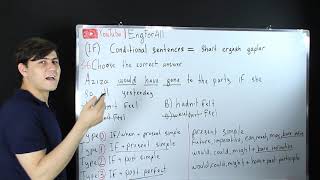 YouTube | EngforAll
(IF) Conditional sentences = Shart ergash gaplar
Choose the correct answer
Aziza would have gone to the party if she
so ill yesterday
B) hadn't felt
Type 0 IF/when + present simple
present simple
Type 1 IF + present simple
future, imperative, can, must, may,
Type 2 IF + past simple
would, could, might + bare infinitive
Type 3 IF + past perfect
would, could, might + have + past participle